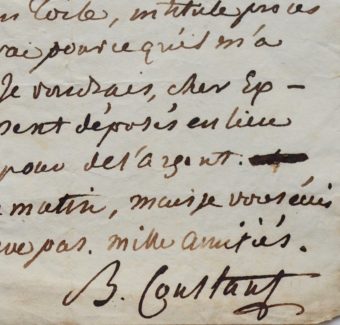 Toile, intitulé procès
vrai pour ce qu'il m'a
Je voudrais, cher Ex-
sent déposés en lieu
pour de l'argent.
matin, mais je vous
pas. mille amitiés.
B. Constant